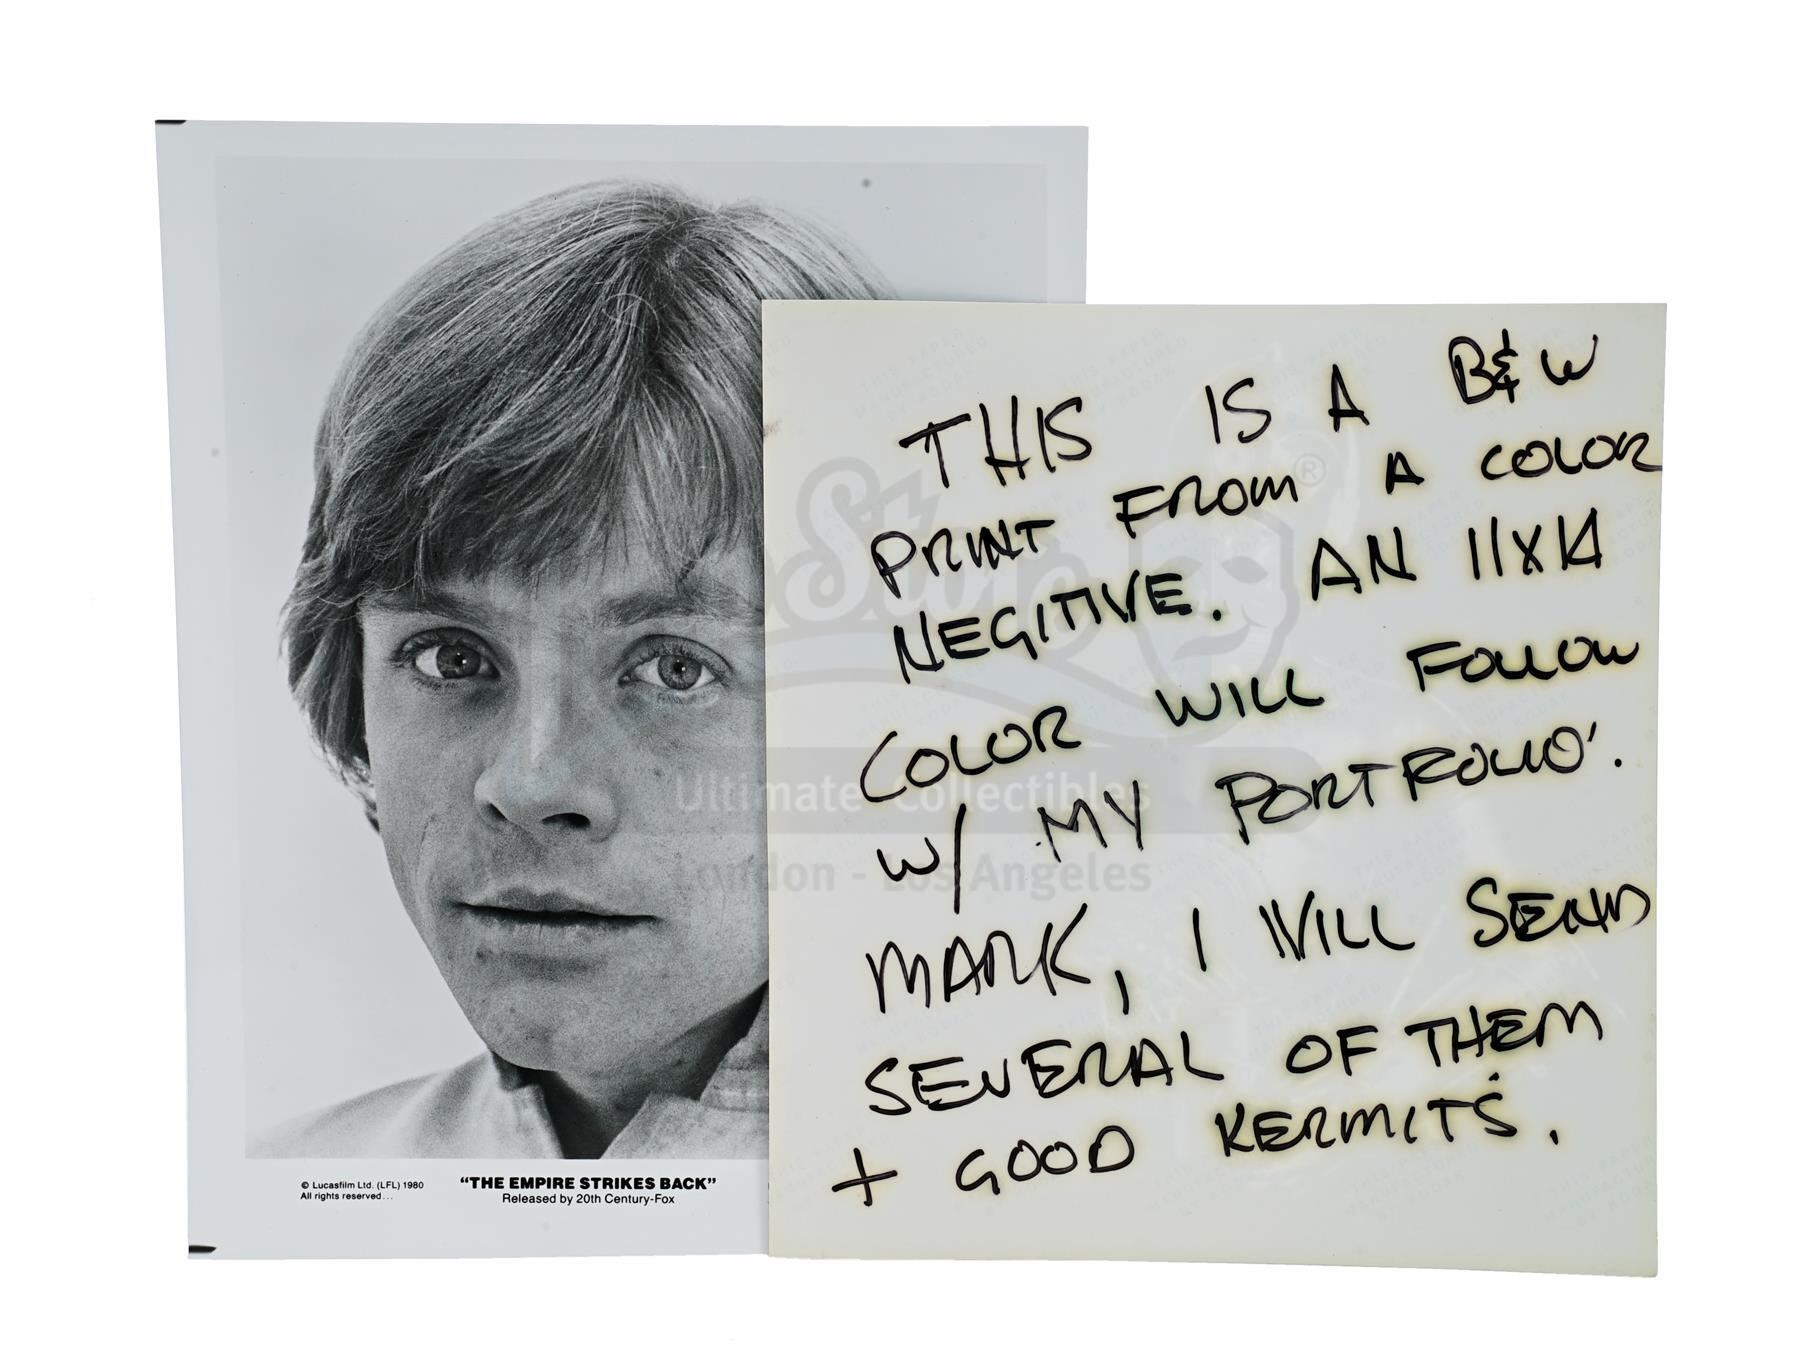 THIS IS A B&W
PRINT FROM A COLOR
NEGITIVE. AN 11X14
COLOR WILL FOLLOW
W/ MY PORTFOLIO'.
MARK, I WILL SEND
SEVERAL OF THEM
+ GOOD KERMITS.
© Lucasfilm Ltd. (LFL) 1980
All rights reserved...
"THE EMPIRE STRIKES BACK"
Released by 20th Century-Fox
Store ®
Ultimate Collectibles
London - Los Angeles